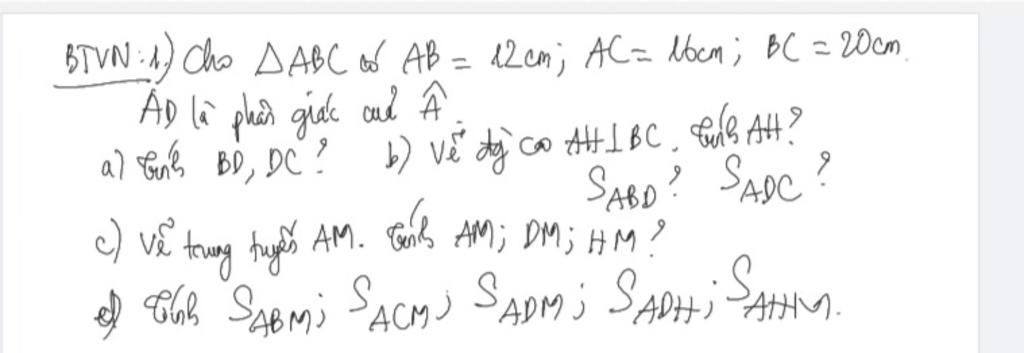 BTVN: 1.) Cho △ABC có AB = 12cm; AC = 16cm; BC = 20cm.
AD là phân giác của Â.
a) tính BD, DC? b) Vẽ đg cao AH⊥BC. tính AH?
S_ABD? S_ADC?
c) Vẽ trung tuyến AM. tính AM; DM; HM?
d) tính S_ABM; S_ACM; S_ADM; S_ADH; S_AHM.